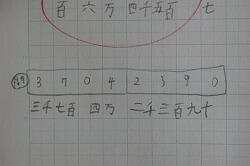 百 六万 四千五百 七
3 7 0 4 2 3 9 0
三千七百 四万 二千三百九十